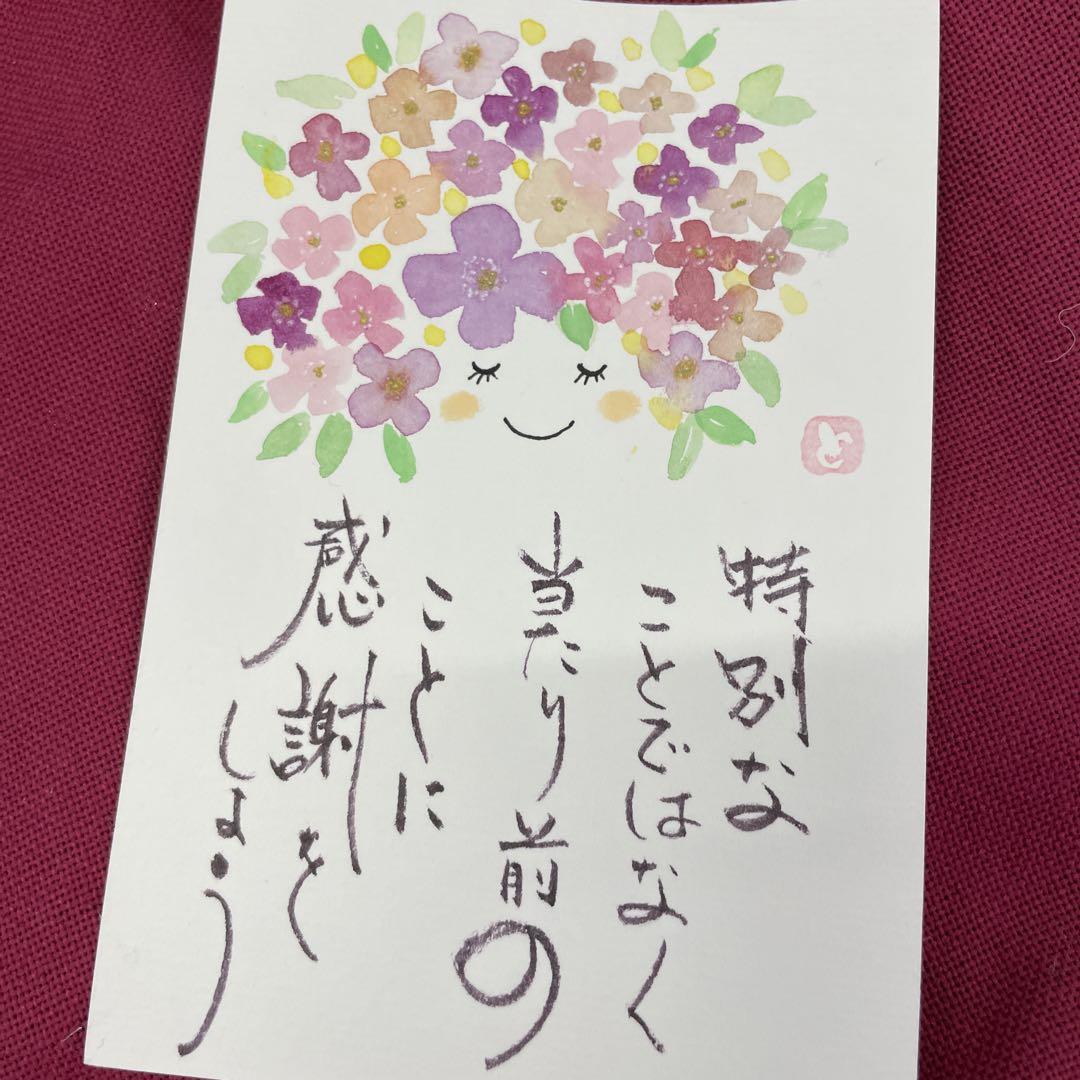 特別な
ことではなく
当たり前の
ことに
感謝を
しよう
と